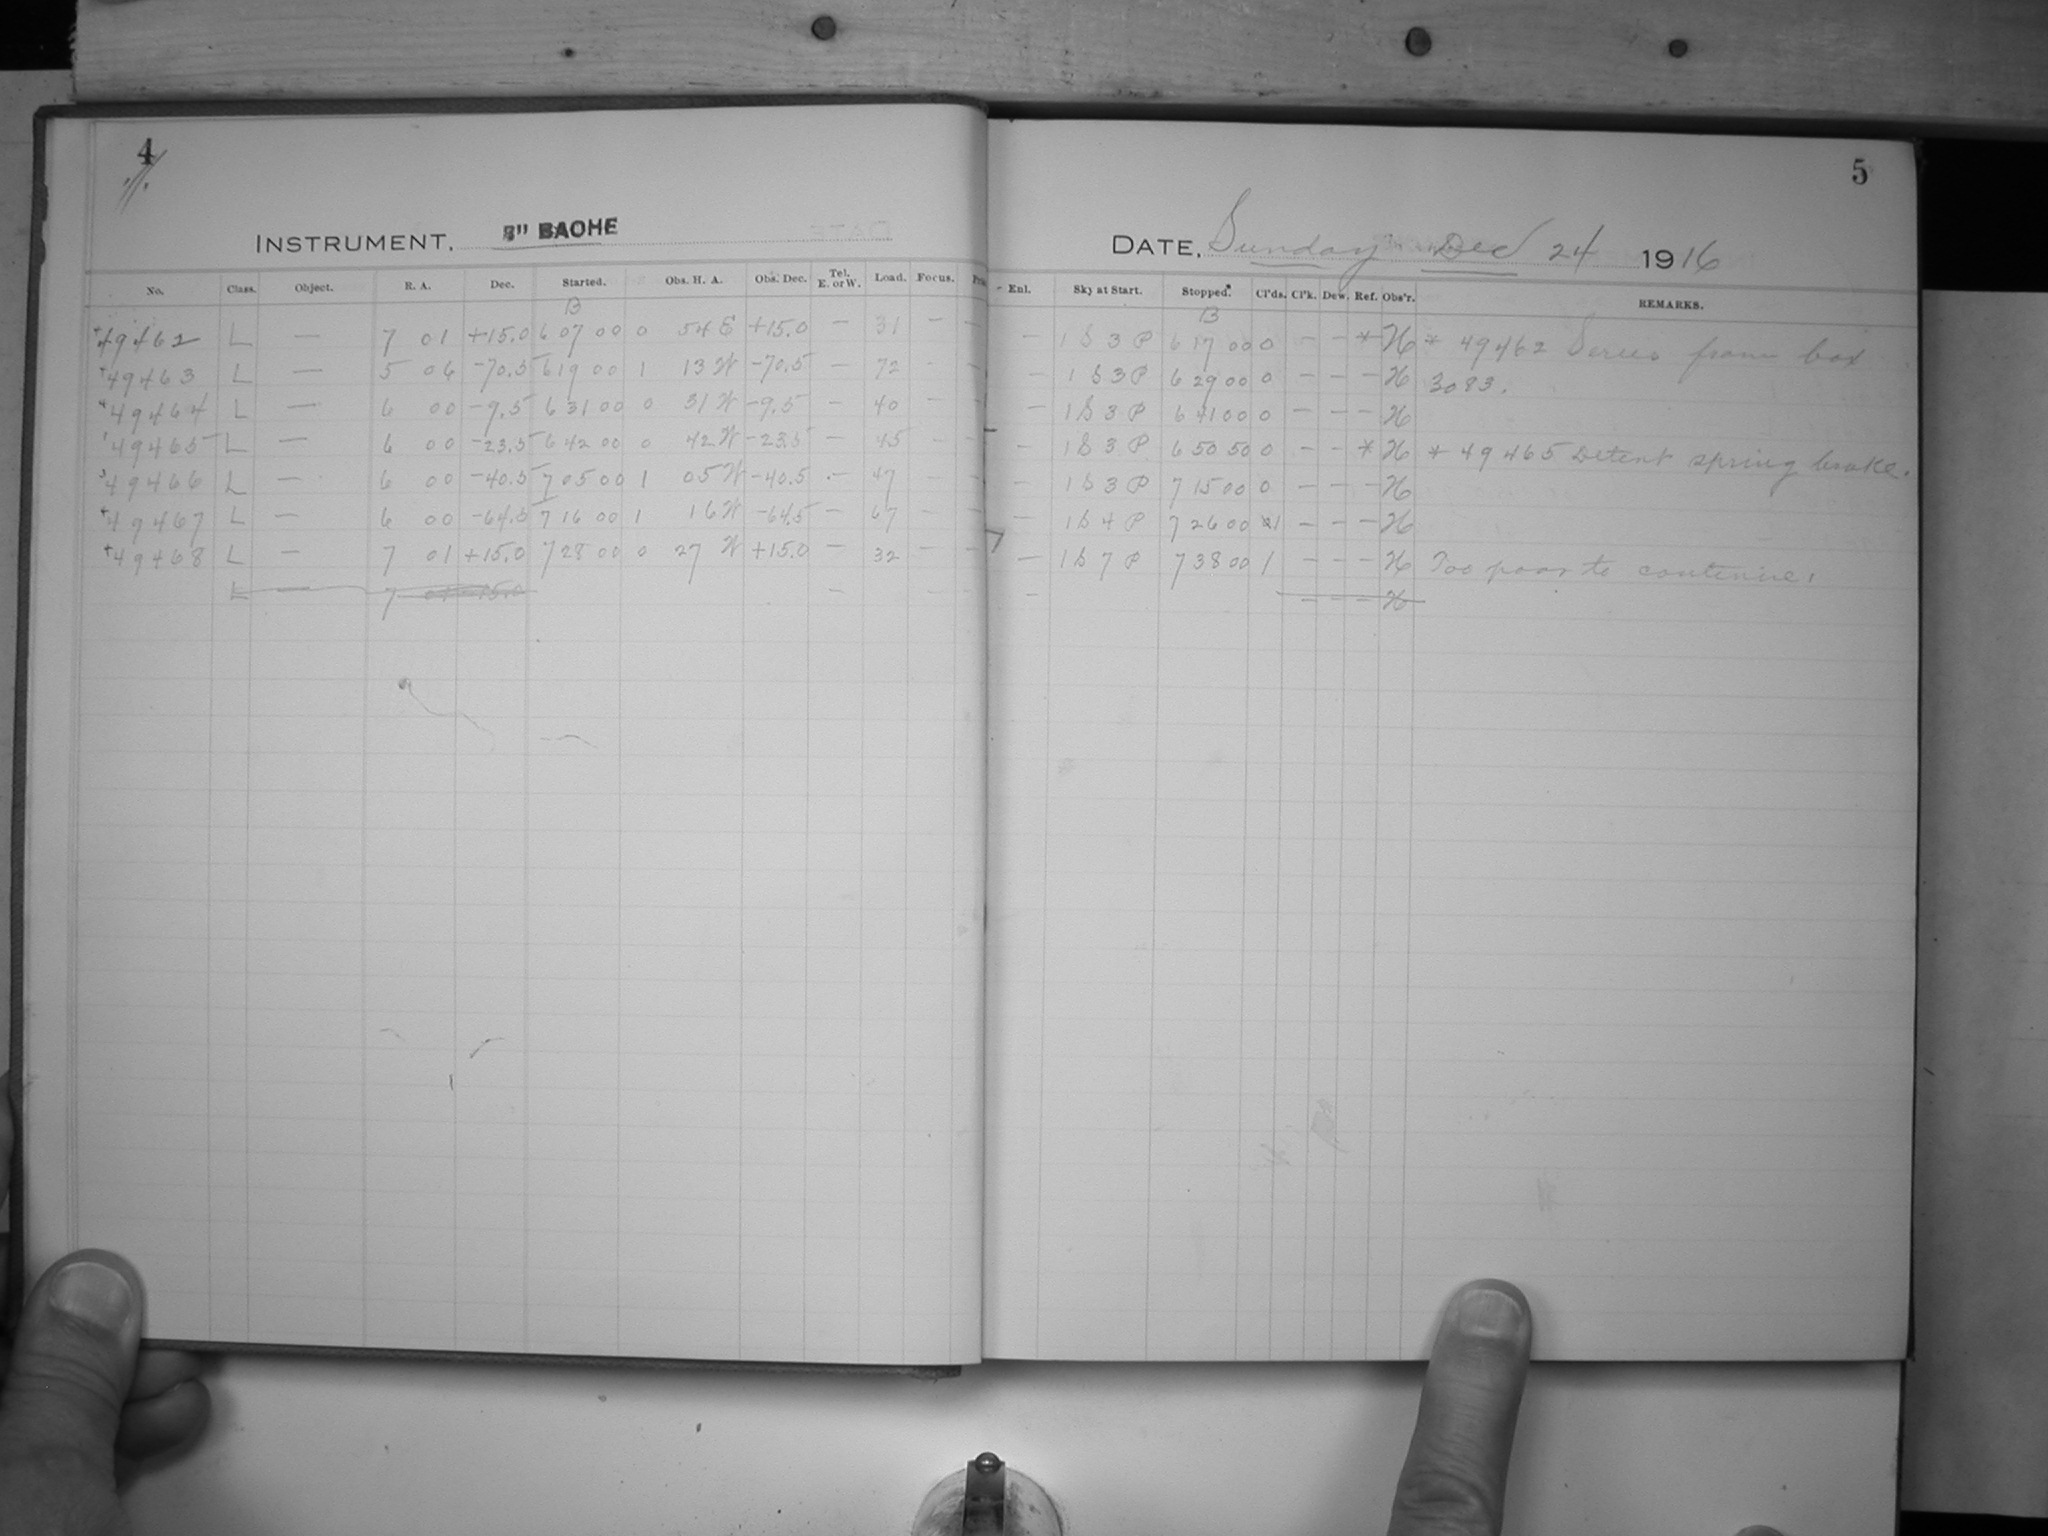 4
5
INSTRUMENT, 8" BACHE
DATE, Sunday Dec 24 1916
No. Class. Object. R. A. Dec. Started. Obs. H. A. Obs. Dec. Tel. E. or W. Load. Focus. Enl. Sky at Start. Stopped. Cl'ds. Cl'k. Dew. Ref. Obs'r. REMARKS.
B B
49462 L — 7 01 +15.0 6 07 00 0 54 E +15.0 — 31 — — — 1 S 3 P 6 17 00 0 — — * H * 49462 Series from box
49463 L — 5 06 -70.5 6 19 00 1 13 W -70.5 — 72 — — — 1 S 3 P 6 29 00 0 — — — H 3083.
49464 L — 6 00 -9.5 6 31 00 0 31 W -9.5 — 40 — — — 1 S 3 P 6 41 00 0 — — — H
49465 L — 6 00 -23.5 6 42 00 0 42 W -23.5 — 45 — — — 1 S 3 P 6 50 50 0 — — * H * 49465 Detent spring broke.
49466 L — 6 00 -40.5 7 05 00 1 05 W -40.5 — 47 — — — 1 S 3 P 7 15 00 0 — — — H
49467 L — 6 00 -64.5 7 16 00 1 16 W -64.5 — 67 — — — 1 S 4 P 7 26 00 1 — — — H
49468 L — 7 01 +15.0 7 28 00 0 27 W +15.0 — 32 — — — 1 S 7 P 7 38 00 1 — — — H Too poor to continue.
L — 7 01 +15.0 — — — — — — — H